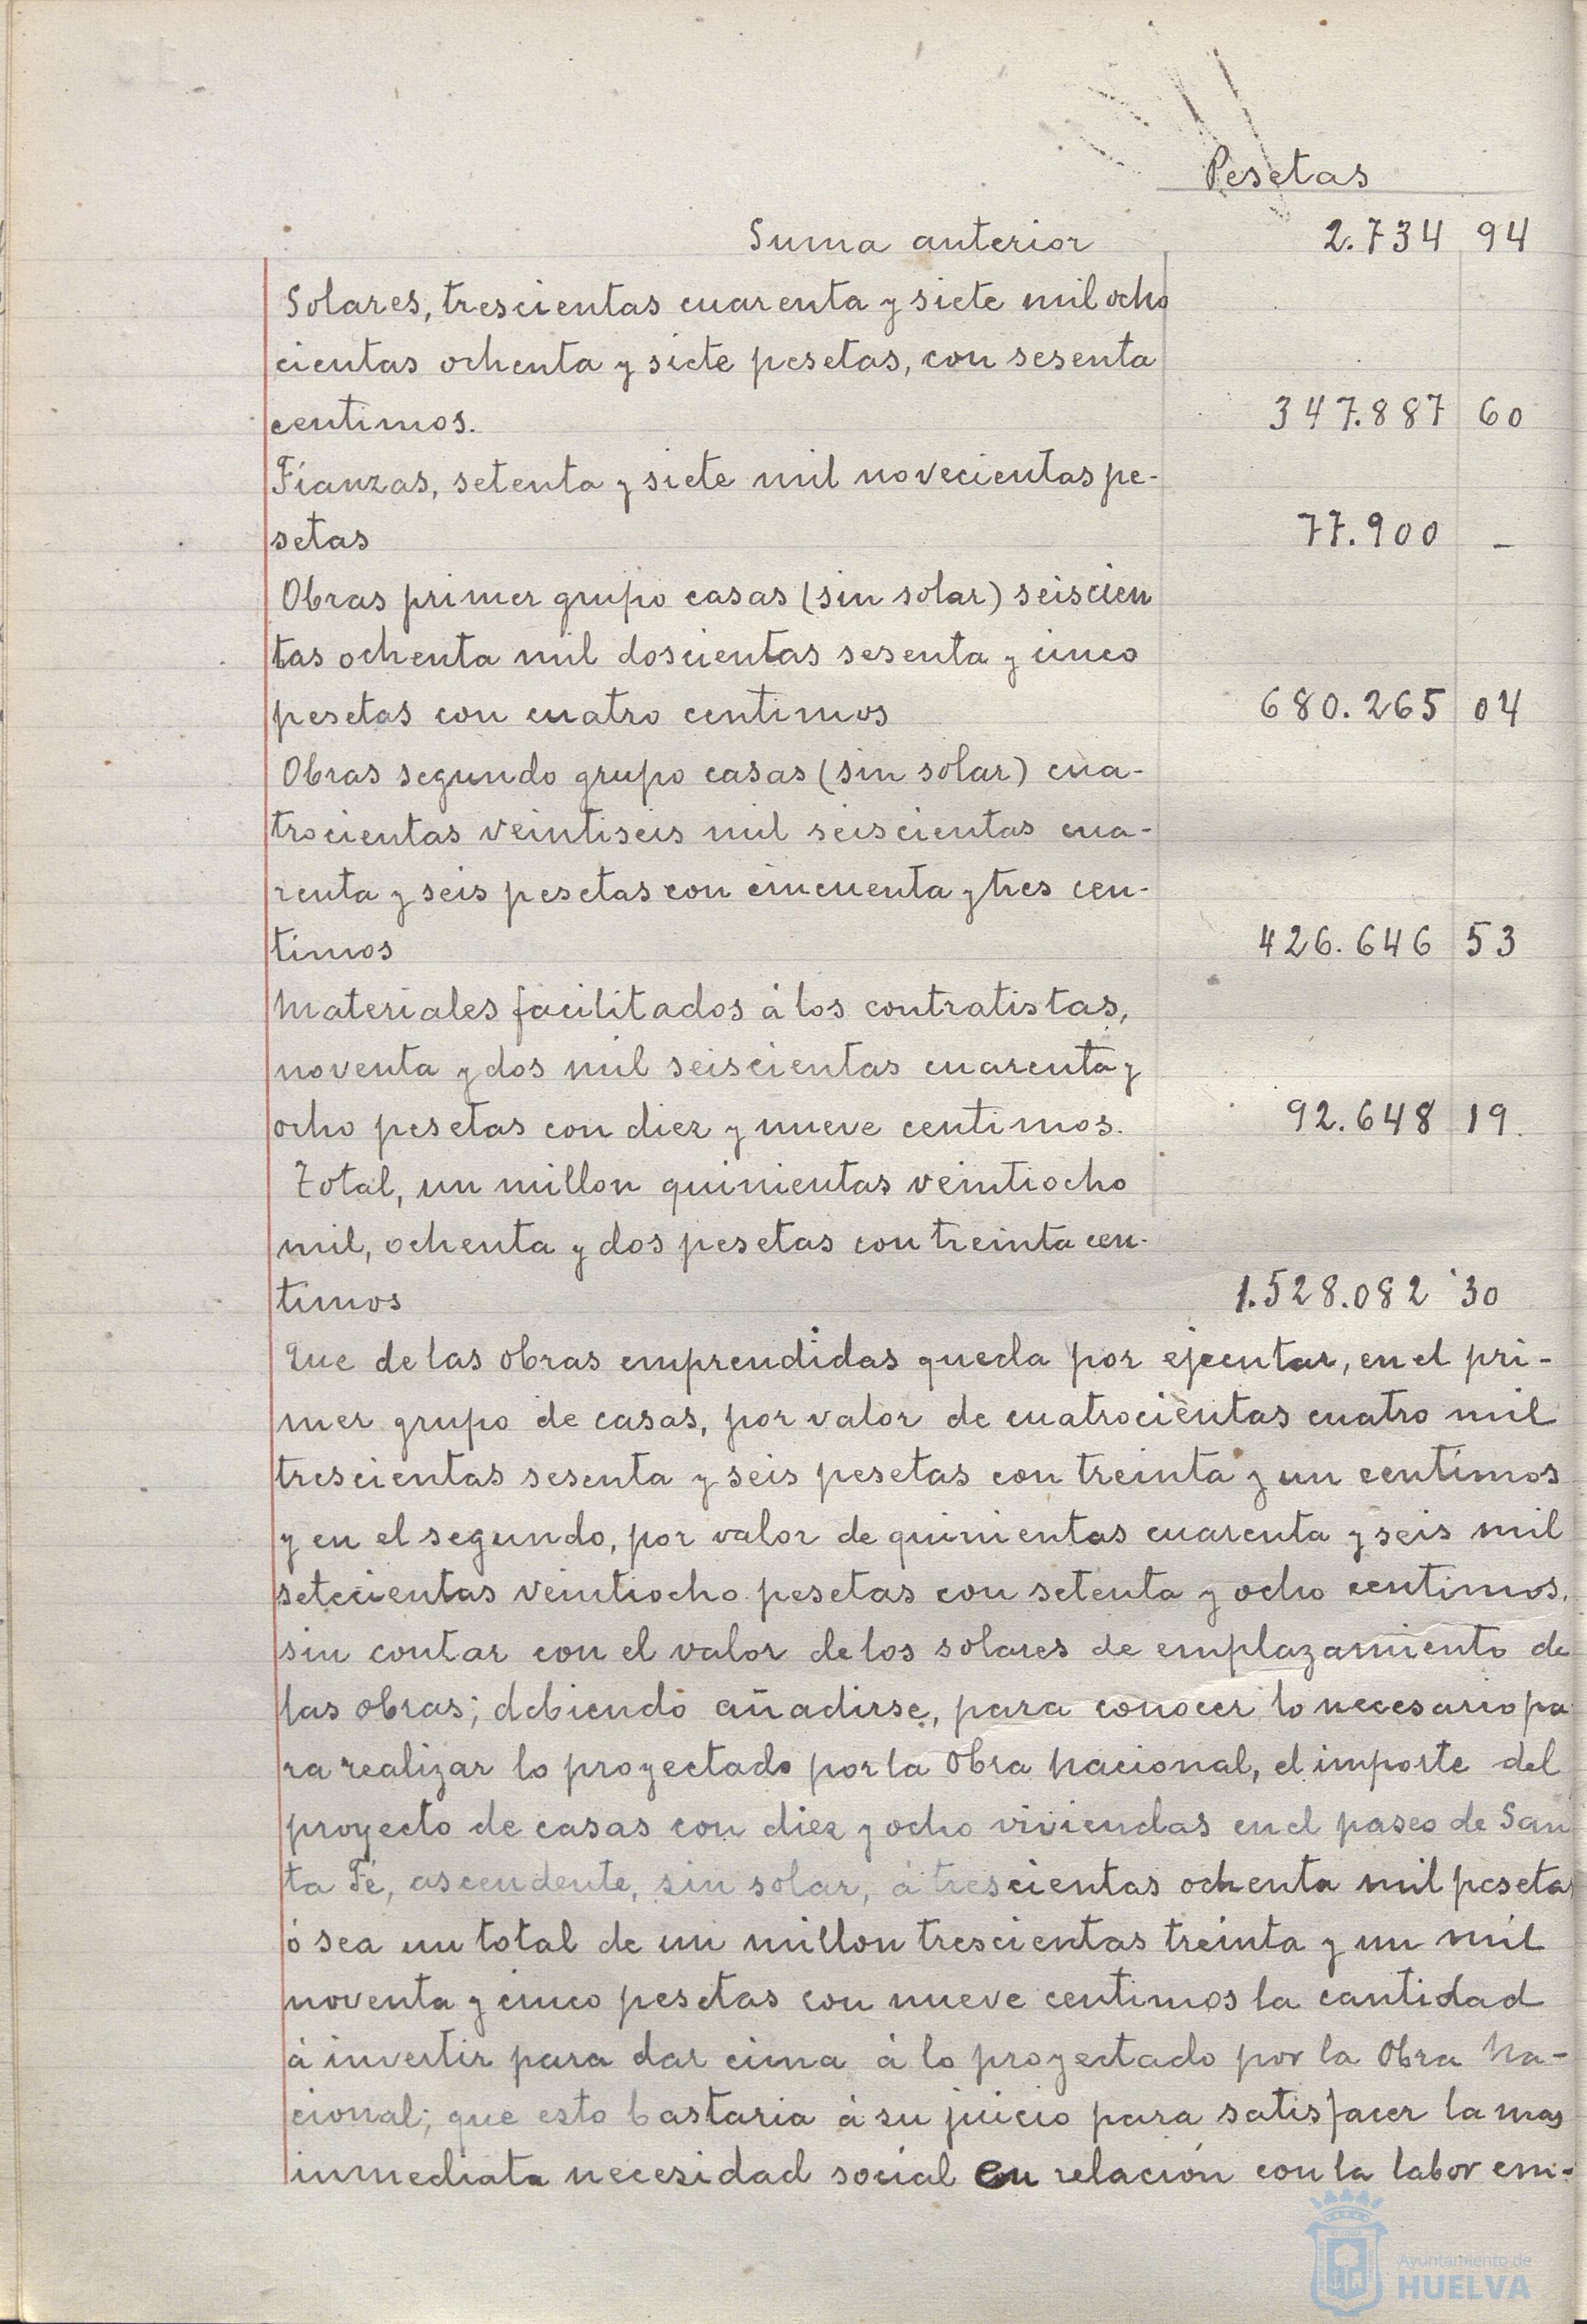 Pesetas
Suma anterior 2.734 94
Solares, trescientas cuarenta y siete mil ocho
cientas ochenta y siete pesetas, con sesenta
centimos. 347.887 60
Fianzas, setenta y siete mil novecientas pe-
setas 77.900 -
Obras primer grupo casas (sin solar) seiscien
tas ochenta mil doscientas sesenta y cinco
pesetas con cuatro centimos 680.265 04
Obras segundo grupo casas (sin solar) cua-
trocientas veintiseis mil seiscientas cua-
renta y seis pesetas con cincuenta y tres cen-
timos 426.646 53
Materiales facilitados á los contratistas,
noventa y dos mil seiscientas cuarenta y
ocho pesetas con diez y nueve centimos. 92.648 19.
Total, un millon quinientas veintiocho
mil, ochenta y dos pesetas con treinta cen-
timos 1.528.082 '30
Que de las obras emprendidas queda por ejecutar, en el pri-
mer grupo de casas, por valor de cuatrocientas cuatro mil
trescientas sesenta y seis pesetas con treinta y un centimos
y en el segundo, por valor de quinientas cuarenta y seis mil
setecientas veintiocho pesetas con setenta y ocho centimos,
sin contar con el valor de los solares de emplazamiento de
las obras; debiendo añadirse, para conocer lo necesario pa
ra realizar lo proyectado por la Obra Nacional, el importe del
proyecto de casas con diez y ocho viviendas en el paseo de San
ta Fé, ascendente, sin solar, á trescientas ochenta mil pesetas
ó sea un total de un millon trescientas treinta y un mil
noventa y cinco pesetas con nueve centimos la cantidad
á invertir para dar cima á lo proyectado por la Obra Na-
cional; que esto bastaria á su juicio para satisfacer la mas
inmediata necesidad social en relación con la labor em-
Ayuntamiento de
HUELVA